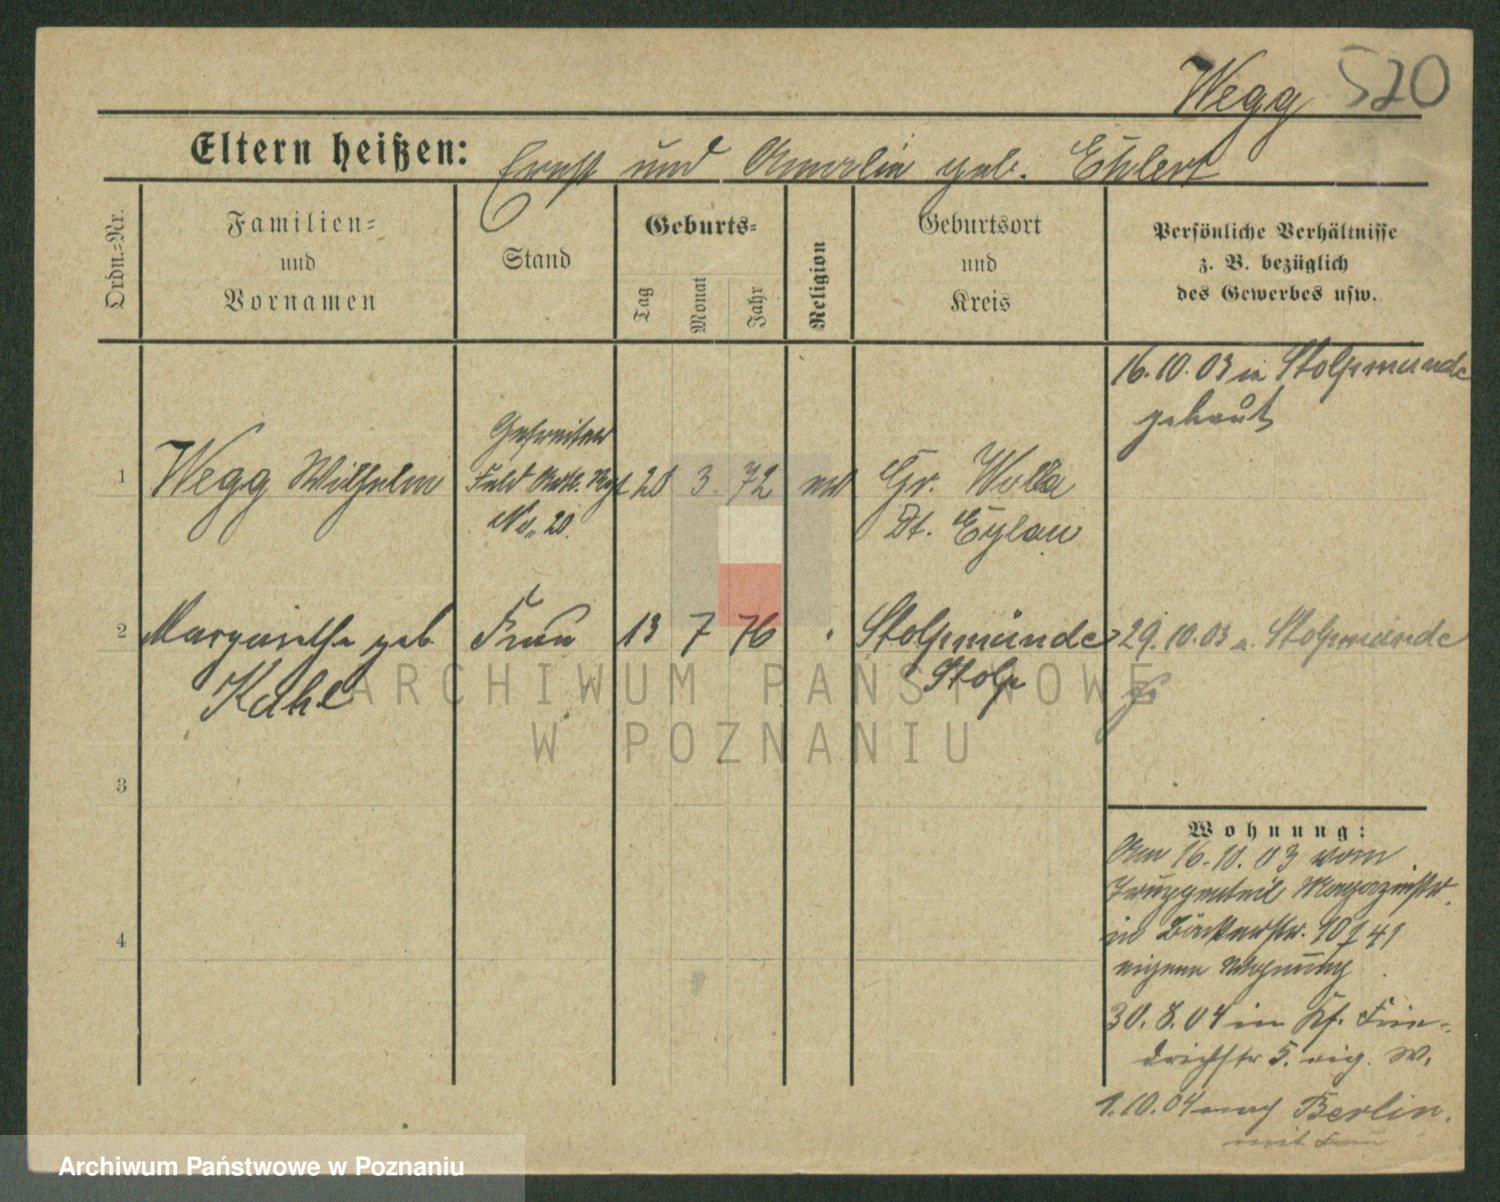 Wegg 520
Eltern heißen: Ernst und Amalie geb. Ehlert
Ordn.-Nr.
Familien-
und
Vornamen
Stand
Geburts-
Tag
Monat
Jahr
Religion
Geburtsort
und
Kreis
Persönliche Verhältnisse
z. B. bezüglich
des Gewerbes usw.
16.10.03 in Stolpmünde
getraut
1
Wegg Wilhelm
Gefreiter
Feld Artl. Rgt
No. 20.
20 3. 72
Gr. Wolla
Dt. Eylau
2
Margarethe geb
Kahl
Frau
13 7 76
Stolpmünde
Stolp
29.10.03 a. Stolpmünde
3
4
Wohnung:
Am 16.10.03 vom
Truppenteil Magazinstr.
in Bäckerstr. 10 41
eigene Wohnung
30.8.04 in Kl. Frie-
drichstr 5. eig. W.
1.10.04 nach Berlin.
mit Frau
ARCHIWUM PAŃSTWOWE
W POZNANIU
Archiwum Państwowe w Poznaniu